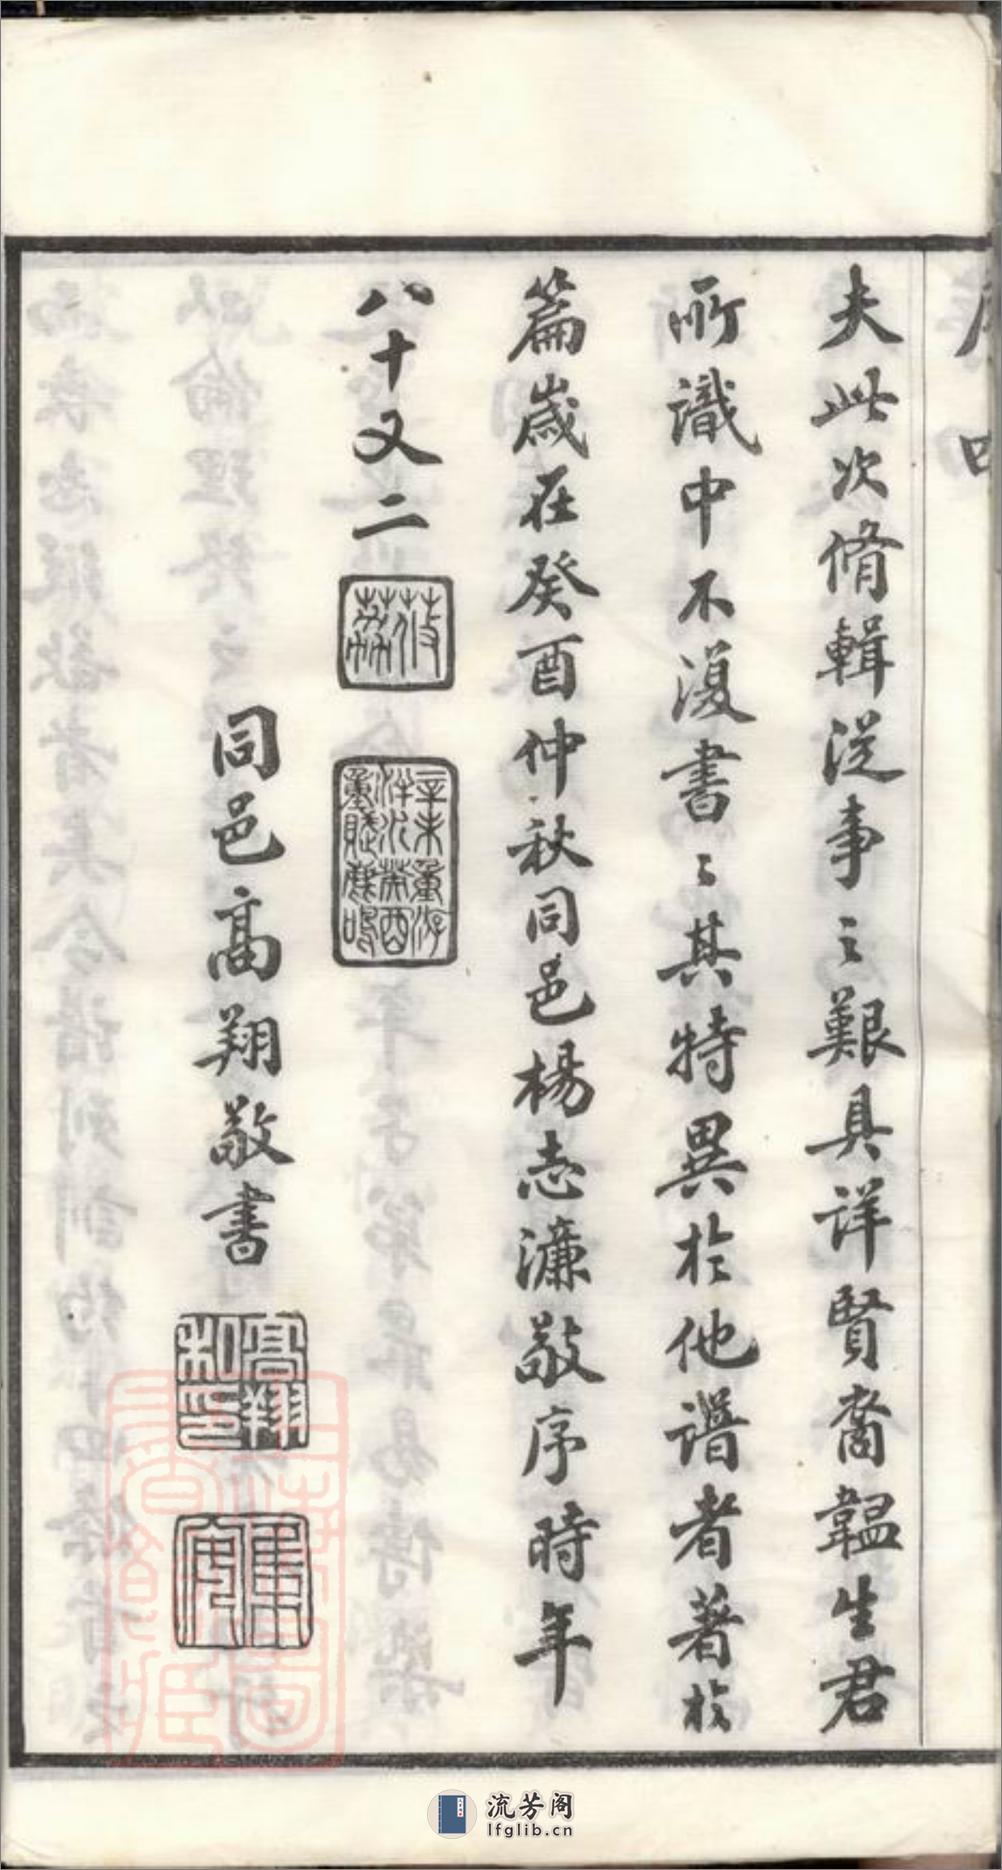 夫此次脩輯從事之艱具詳賢裔韞生君
所識中不復書書其特異於他譜者著於
篇歲在癸酉仲秋同邑楊志濂敬序時年
八十又二
辛未重游
泮水癸酉
重賦鹿鳴
同邑高翔敬書
高翔
私印
流芳阁
lfglib.cn